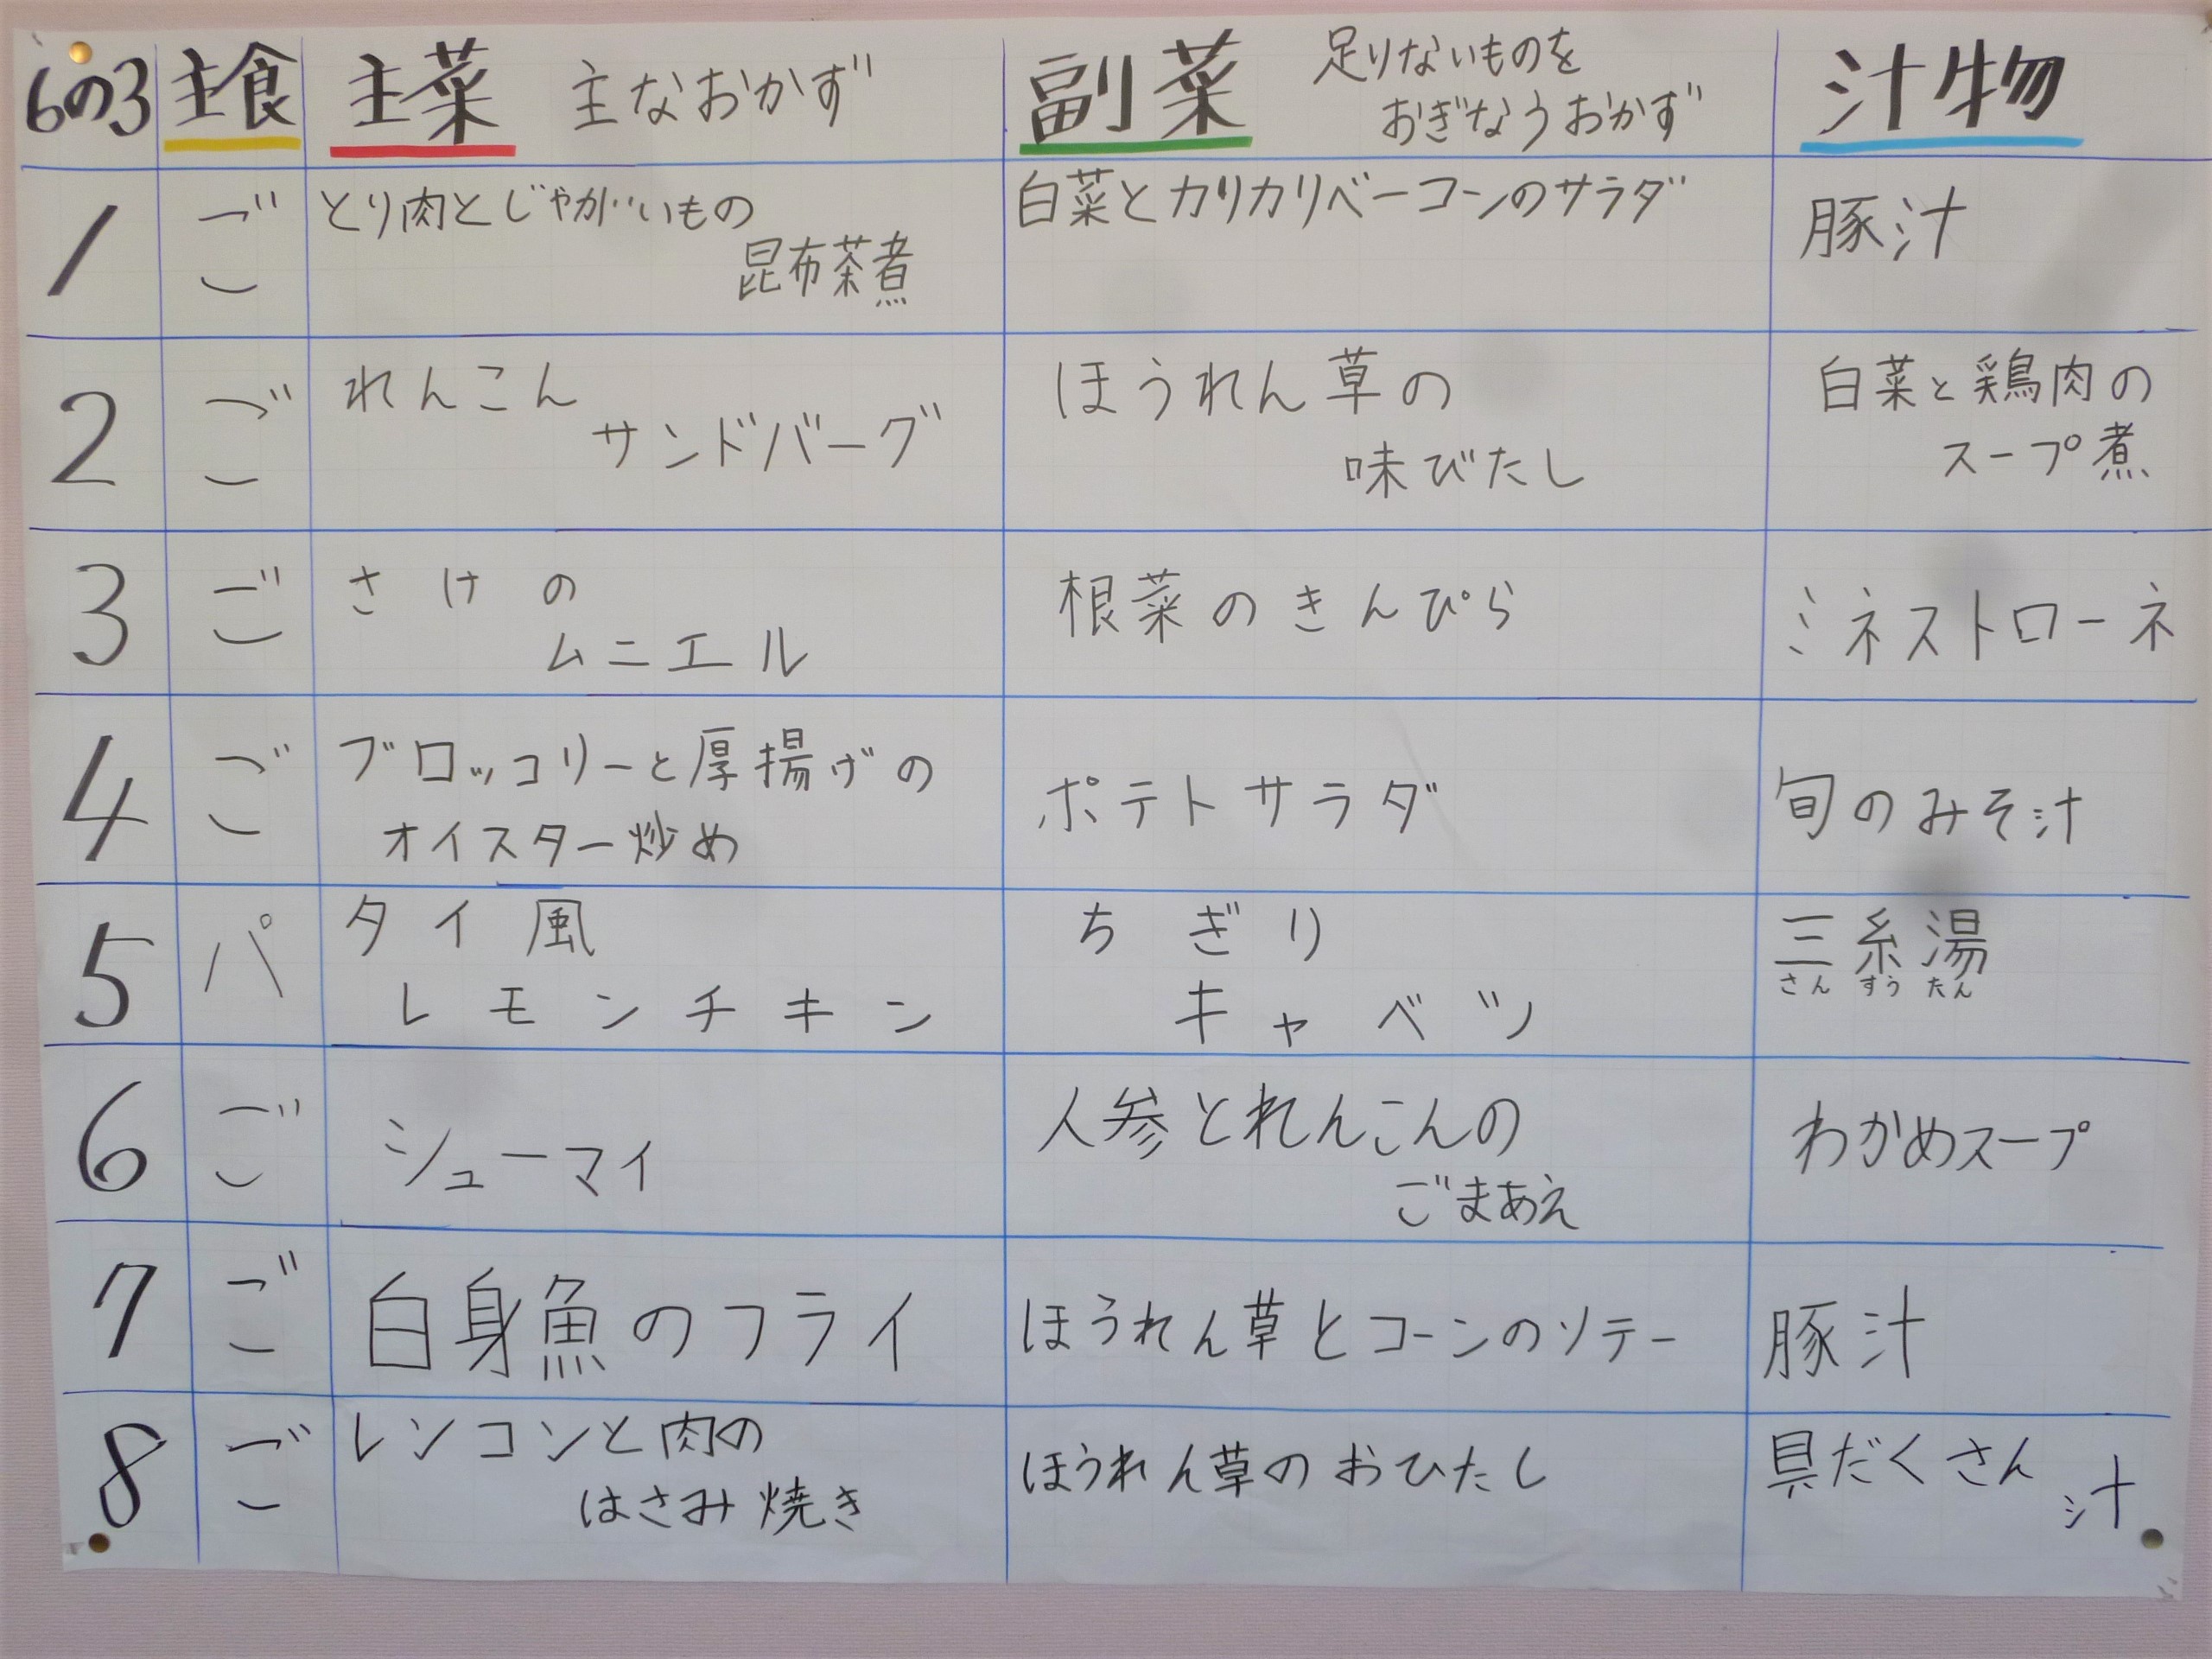 6の3 主食 主菜 主なおかず 副菜 足りないものを
おぎなうおかず 汁物
1 ご とり肉とじゃがいもの
昆布茶煮
白菜とカリカリベーコンのサラダ
豚汁
2 ご れんこん
サンドバーグ
ほうれん草の
味びたし
白菜と鶏肉の
スープ煮
3 ご さけの
ムニエル
根菜のきんぴら
ミネストローネ
4 ご ブロッコリーと厚揚げの
オイスター炒め
ポテトサラダ
旬のみそ汁
5 パ タイ風
レモンチキン
ちぎり
キャベツ
三糸湯
さんすうたん
6 ご シューマイ
人参とれんこんの
ごまあえ
わかめスープ
7 ご 白身魚のフライ
ほうれん草とコーンのソテー
豚汁
8 ご レンコンと肉の
はさみ焼き
ほうれん草のおひたし
具だくさん
汁